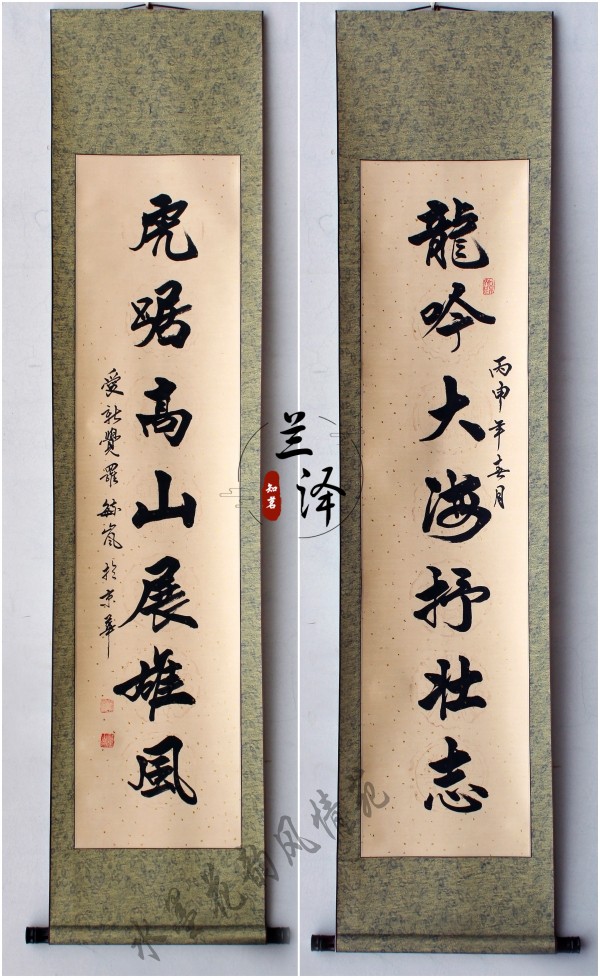 龍吟大海抒壮志
丙申年春月
虎踞高山展雄风
爱新覺羅毓嵐於京華
兰泽
知茗
水墨花韵风情苑